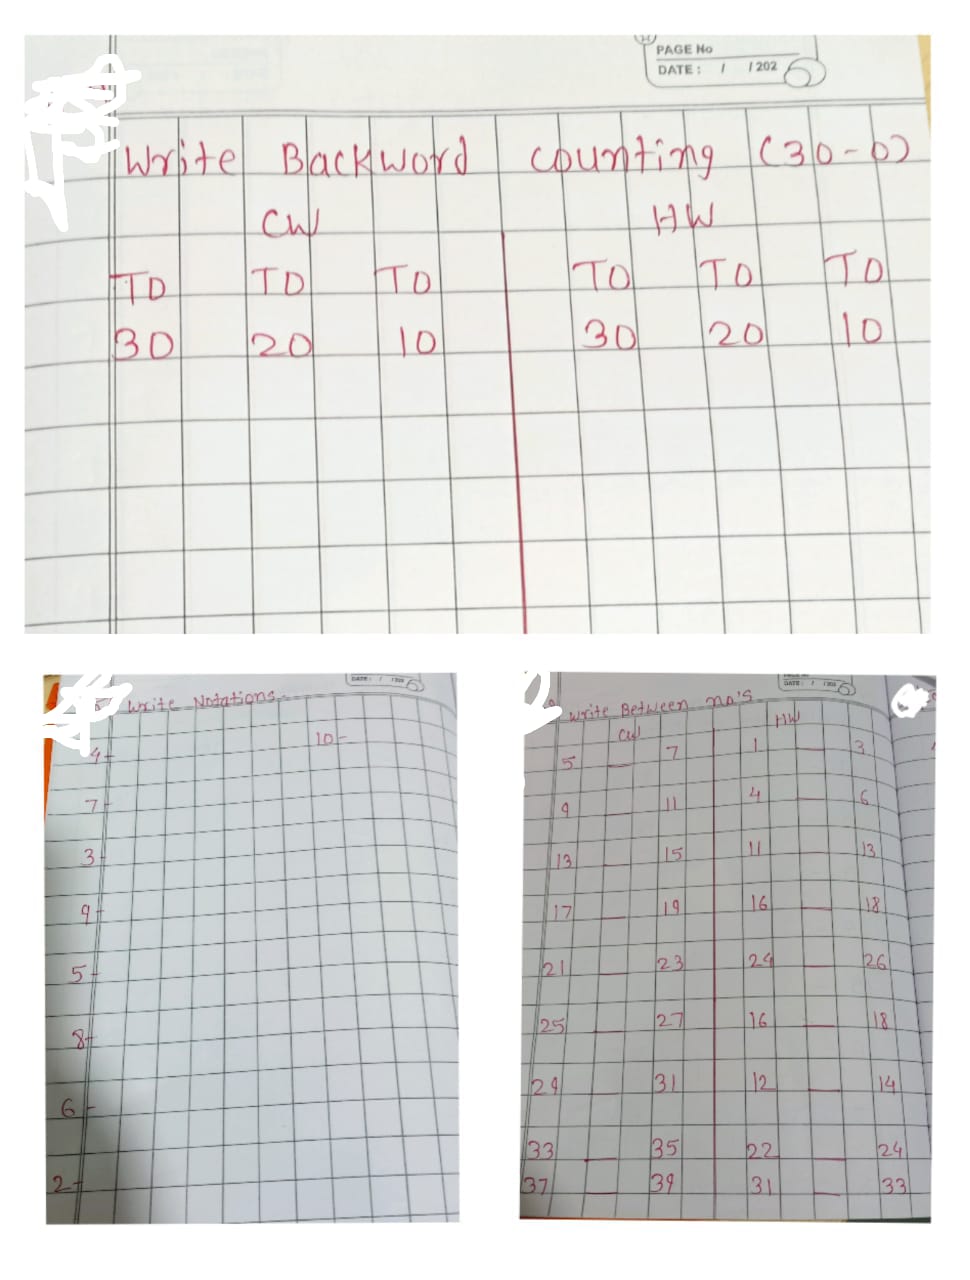 PAGE No
DATE: / /202
Write Backword counting (30-0)
CW HW
TO TO TO TO TO TO
30 20 10 30 20 10
DATE: / /202
Write Notations.
4- 10-
7-
3-
9-
5-
8-
6-
2-
DATE: / /202
Write Between no's
CW HW
5 _ 7 1 _ 3
9 _ 11 4 _ 6
13 _ 15 11 _ 13
17 _ 19 16 _ 18
21 _ 23 24 _ 26
25 _ 27 16 _ 18
29 _ 31 12 _ 14
33 _ 35 22 _ 24
37 _ 39 31 _ 33